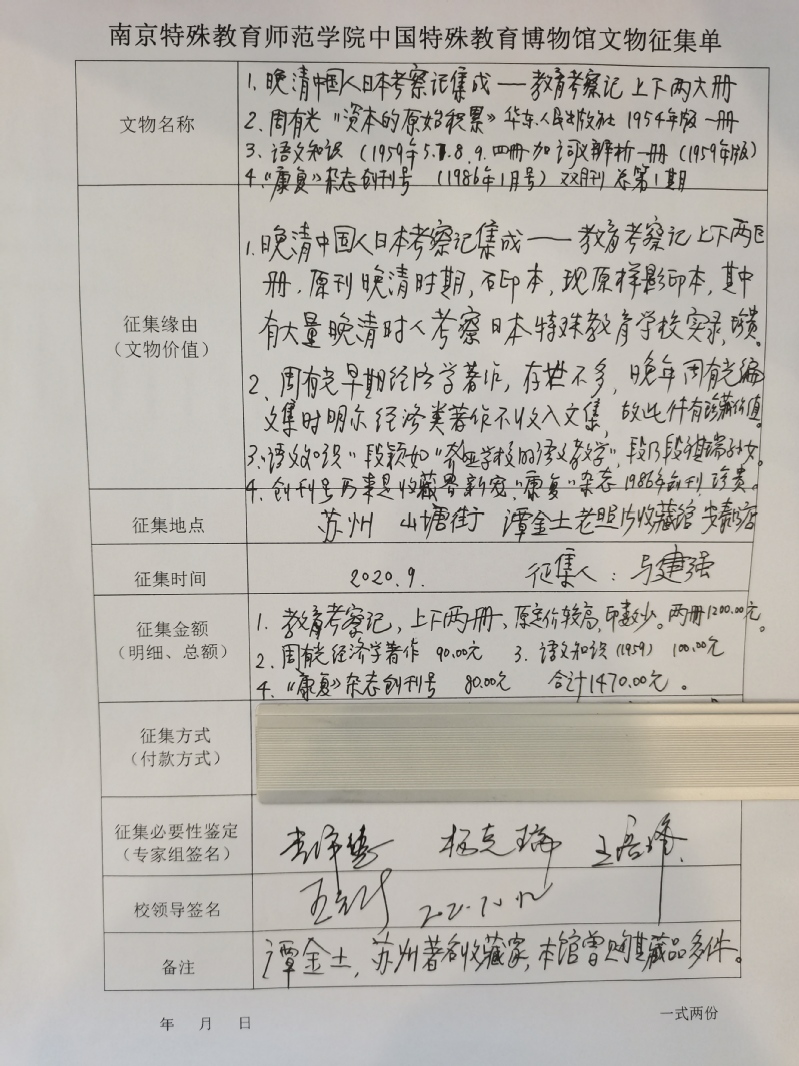 南京特殊教育师范学院中国特殊教育博物馆文物征集单
文物名称
1. 晚清中国人日本考察记集成——教育考察记 上下两大册
2. 周有光《资本的原始积累》华东人民出版社 1954年版 一册
3. 语文知识（1959年5.7.8.9.四册加词义辨析一册（1959年版）
4.《康复》杂志创刊号 （1986年1月号）双月刊 总第1期
征集缘由
（文物价值）
1. 晚清中国人日本考察记集成——教育考察记 上下两巨
册，原刊晚清时期，石印本，现原样影印本，其中
有大量晚清时人考察日本特殊教育学校实录，珍贵。
2. 周有光早期经济学著作，存世不多，晚年周有光编
文集时明示经济类著作不收入文集，故此件有珍藏价值。
3.“语文知识”段颖如“聋哑学校的语文教学”，段乃段祺瑞孙女。
4. 创刊号历来是收藏界新宠，“康复”杂志1986年创刊 珍贵。
征集地点
苏州 山塘街 谭金土老照片收藏馆
征集时间
2020.9. 征集人：马建强
征集金额
（明细、总额）
1. 教育考察记，上下两册、原定价较高，印数少。两册1200.00元。
2. 周有光经济学著作 90.00元 3. 语文知识（1959） 100.00元
4.《康复》杂志创刊号 80.00元 合计1470.00元。
征集方式
（付款方式）
征集必要性鉴定
（专家组签名）
杨克瑞
校领导签名
备注
谭金土，苏州著名收藏家，本馆曾购其藏品多件。
年 月 日
一式两份